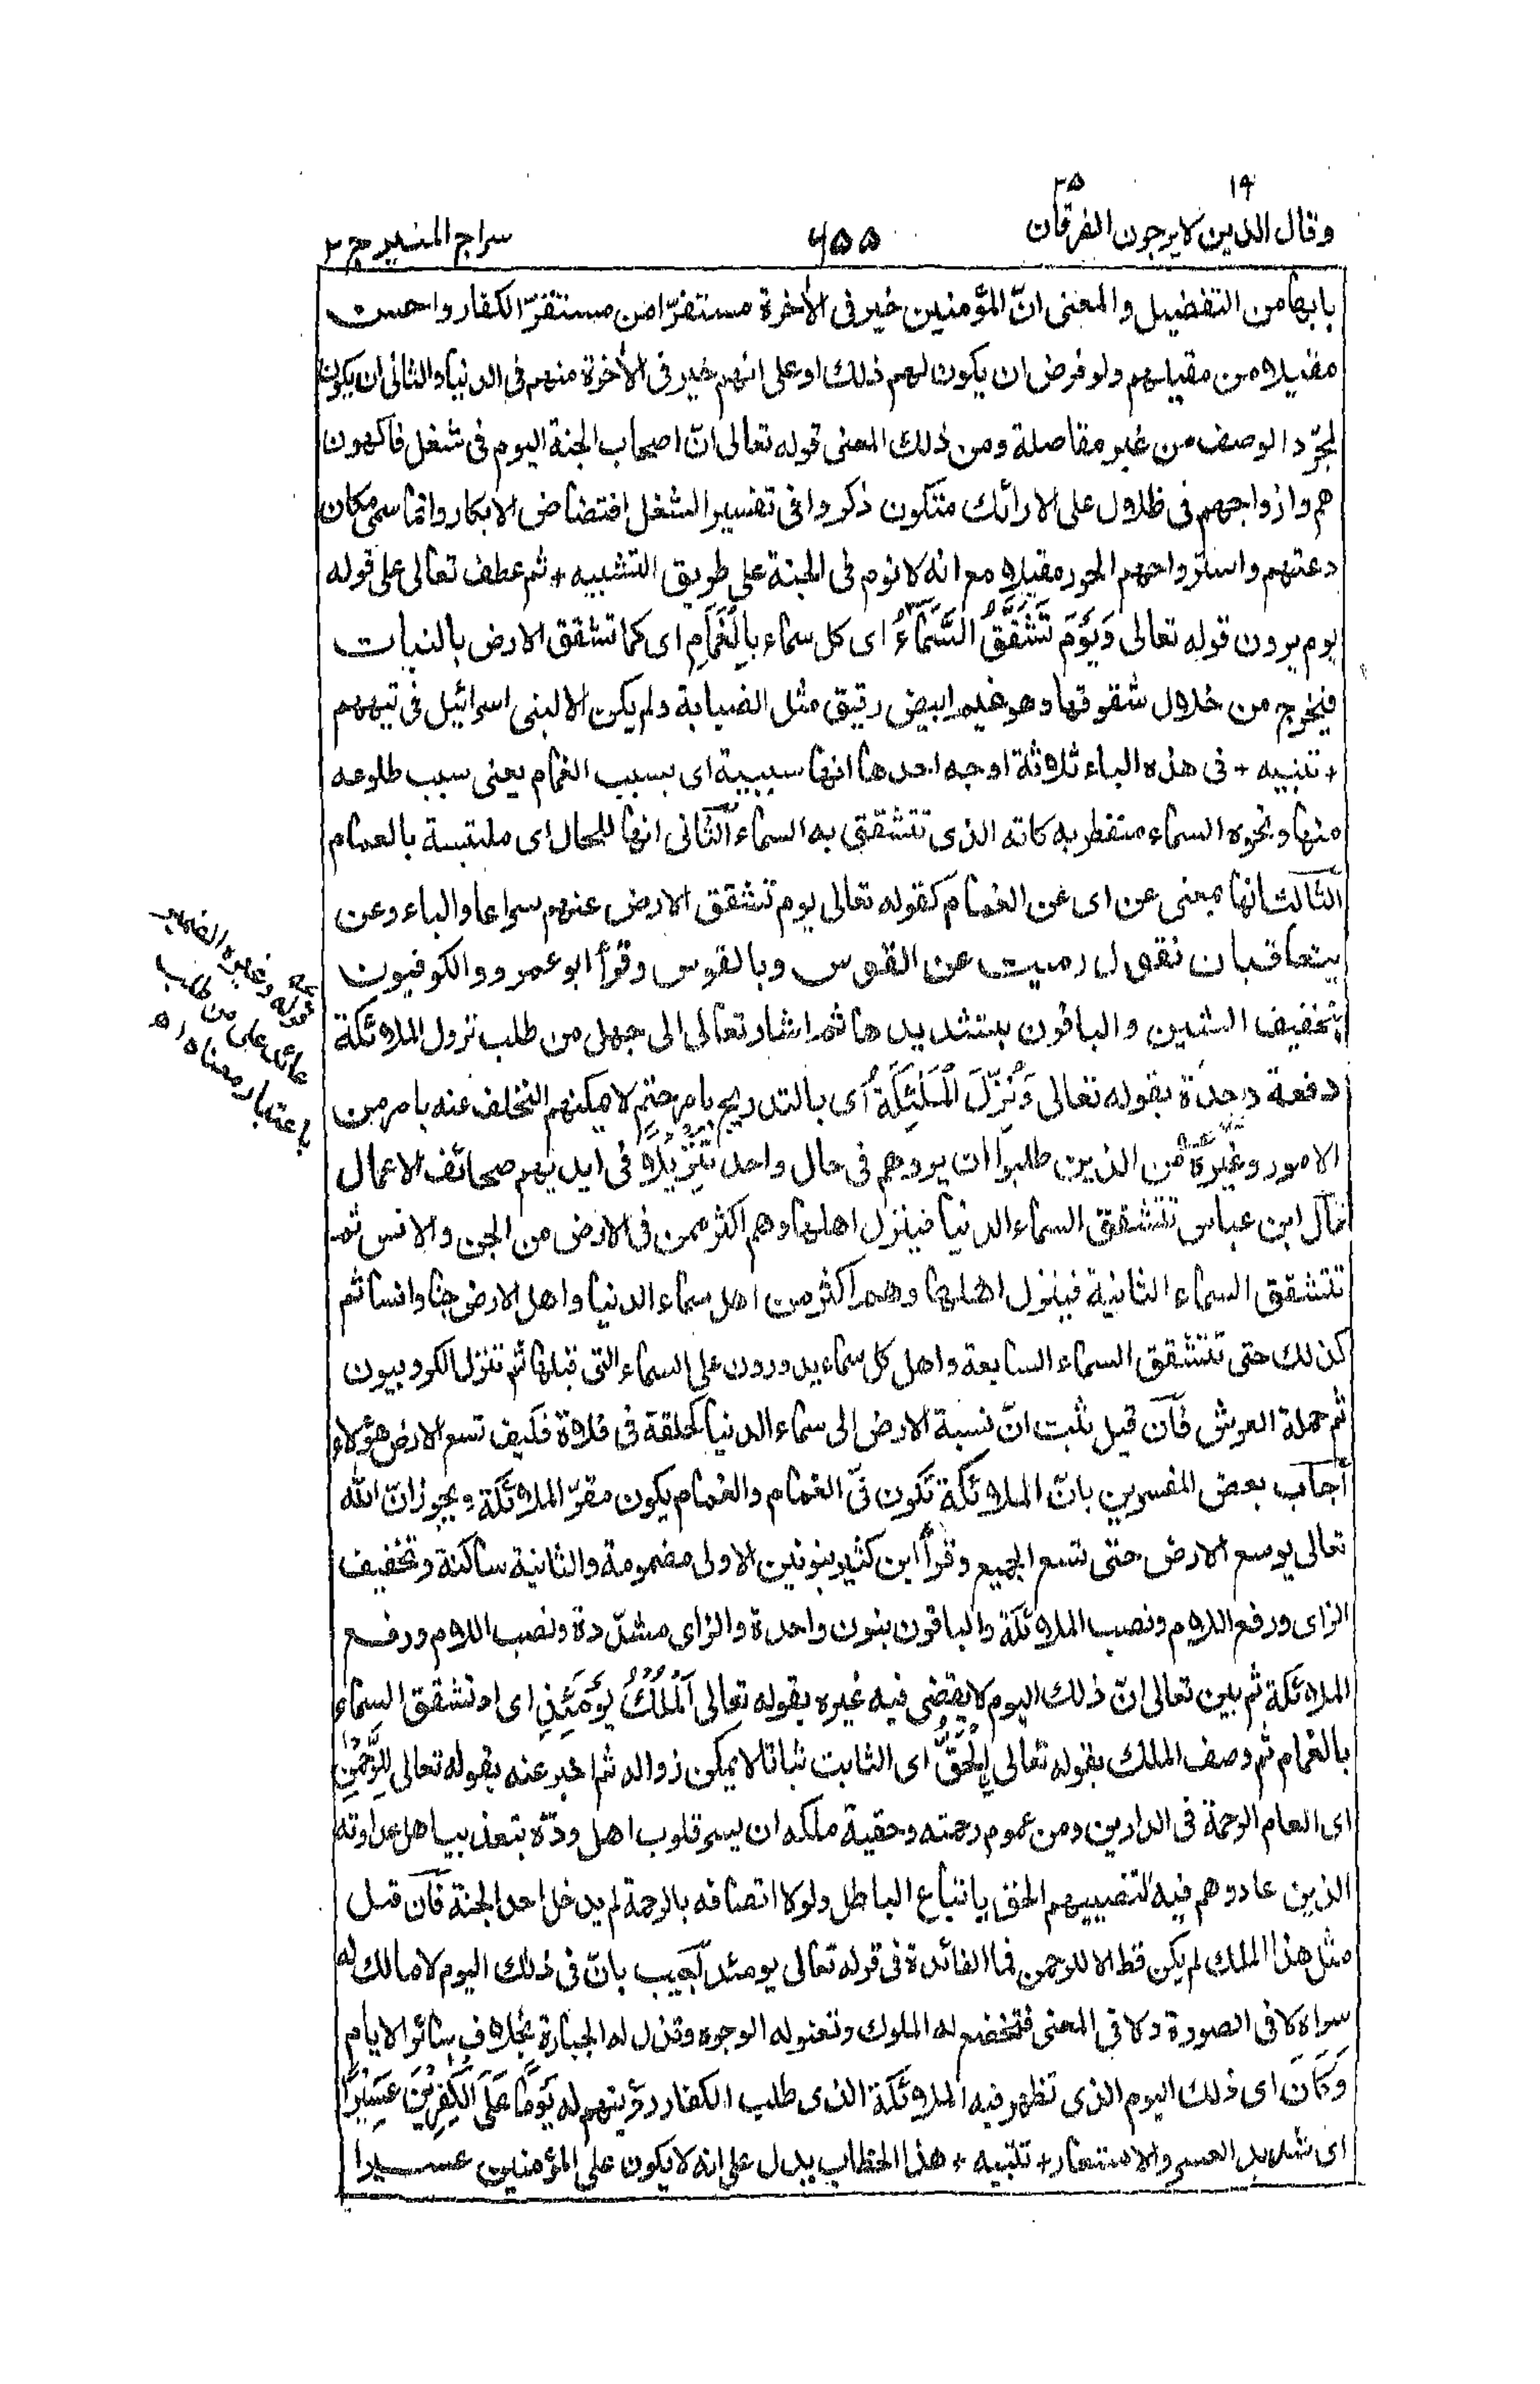 ١٩ ٢٥
وقال الذين لا يرجون الفرقان ٦٥٥ سراج المنير ج ٢
بابها من التفضيل والمعنى انّ المؤمنين خير فى الأخرة مستقرّا من مستقرّ الكفار واحسن
مقيلا من مقيلهم ولو فرض ان يكون لهم ذلك او على انهم خير فى الأخرة منهم فى الدنيا والثانى ان يكون
لمجرّد الوصف من غير مفاضلة ومن ذلك المعنى قوله تعالى انّ اصحاب الجنة اليوم فى شغل فاكهون
هم وازواجهم فى ظلال على الارائك متكون ذكروا فى تفسير الشغل افتضاض الابكار وانما سمى مكان
دعتهم واسترواحهم الحور مقيلا مع انه لا نوم فى الجنة على طريق التشبيه + ثم عطف تعالى على قوله
يوم يرون قوله تعالى وَيَوْمَ تَشَقَّقُ السَّمَاءُ اى كل سماء بِالْغَمَامِ اى كما تشقق الارض بالنبات
فيخرج من خلال شقوقها وهو غيم ابيض رقيق مثل الضبابة ولم يكن الا لبنى اسرائيل فى تيههم
+ تنبيه + فى هذه الباء ثلاثة اوجه احدها انها سببية اى بسبب الغمام يعنى سبب طلوعه
منها ونحوه السماء منفطر به كانه الذى تتشقق به السماء الثانى انها للحال اى ملتبسة بالغمام
الثالث انها بمعنى عن اى عن الغمام كقوله تعالى يوم تشقق الارض عنهم سراعا والباء وعن
يتعاقبان نقول رميت عن القوس وبالقوس وقرأ ابو عمرو والكوفيون
بتخفيف الشين والباقون بتشديدها ثم اشار تعالى الى جهل من طلب نزول الملائكة
دفعة واحدة بقوله تعالى وَنُزِّلَ الْمَلٰئِكَةُ اى بالتدريج بامر حتم لا يمكنهم التخلف عنه بامر من
الامور وغيره من الذين طلبوا ان يروهم فى حال واحد تَنْزِيْلًا فى ايديهم صحائف الاعمال
قال ابن عباس تتشقق السماء الدنيا فينزل اهلها وهم اكثر ممن فى الارض من الجن والانس ثم
تتشقق السماء الثانية فينزل اهلها وهم اكثر من اهل سماء الدنيا واهل الارض جنا وانسا ثم
كذلك حتى تتشقق السماء السابعة واهل كل سماء يدورون على السماء التى قبلها ثم تنزل الكروبيون
ثم حملة العرش فان قيل ثبت انّ نسبة الارض الى سماء الدنيا كحلقة فى فلاة فكيف تسع الارض هؤلاء
أجاب بعض المفسرين بانّ الملائكة تكون فى الغمام والغمام يكون مقرّ الملائكة ويجوز انّ الله
تعالى يوسع الارض حتى تسع الجميع وقرأ ابن كثير بنونين الاولى مضمومة والثانية ساكنة وتخفيف
الزاى ورفع اللام ونصب الملائكة والباقون بنون واحدة والزاى مشدّدة ونصب اللام ورفع
الملائكة ثم بين تعالى انّ ذلك اليوم لا يقضى فيه غيره بقوله تعالى اَلْمُلْكُ يَوْمَئِذِنِ اى اذ تشقق السماء
بالغمام ثم وصف الملك بقوله تعالى الْحَقُّ اى الثابت ثباتا لا يمكن زواله ثم اخبر عنه بقوله تعالى لِلرَّحْمٰنِ
اى العام الرحمة فى الدارين ومن عموم رحمته وحقية ملكه ان يسر قلوب اهل ودّه بتعذيب اهل عداوته
الذين عادوهم فيه لتضييعهم الحق باتباع الباطل ولولا اتصافه بالرحمة لم يدخل احد الجنة فان قيل
مثل هذا الملك لم يكن قط الا للرحمن فما الفائدة فى قوله تعالى يومئذ اجيب بانّ فى ذلك اليوم لا مالك له
سواه لا فى الصورة ولا فى المعنى فتخضع له الملوك وتعنو له الوجوه وتذل له الجبابرة بخلاف سائر الايام
وَكَانَ اى ذلك اليوم الذى تظهر فيه الملائكة الذى طلب الكفار رؤيتهم له يَوْمًا عَلَى الْكٰفِرِيْنَ عَسِيْرًا
اى شديد العسر والاستعار + تنبيه + هذا الخطاب يدل على انه لا يكون على المؤمنين عسيرا
قوله وغيره الضمير
عائد على من طلب
باعتبار معناه اه